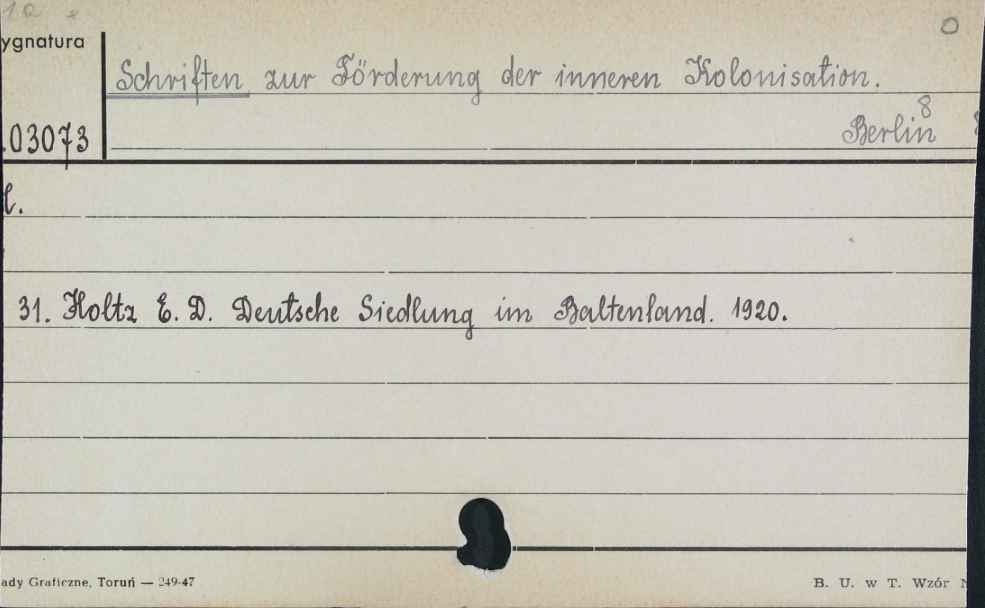 ygnatura
Schriften zur Förderung der inneren Kolonisation.
.03073
Berlin 8
l.
31. Holtz E. D. Deutsche Siedlung im Baltenland. 1920.
ady Graficzne, Toruń — 249-47 B. U. w T. Wzór